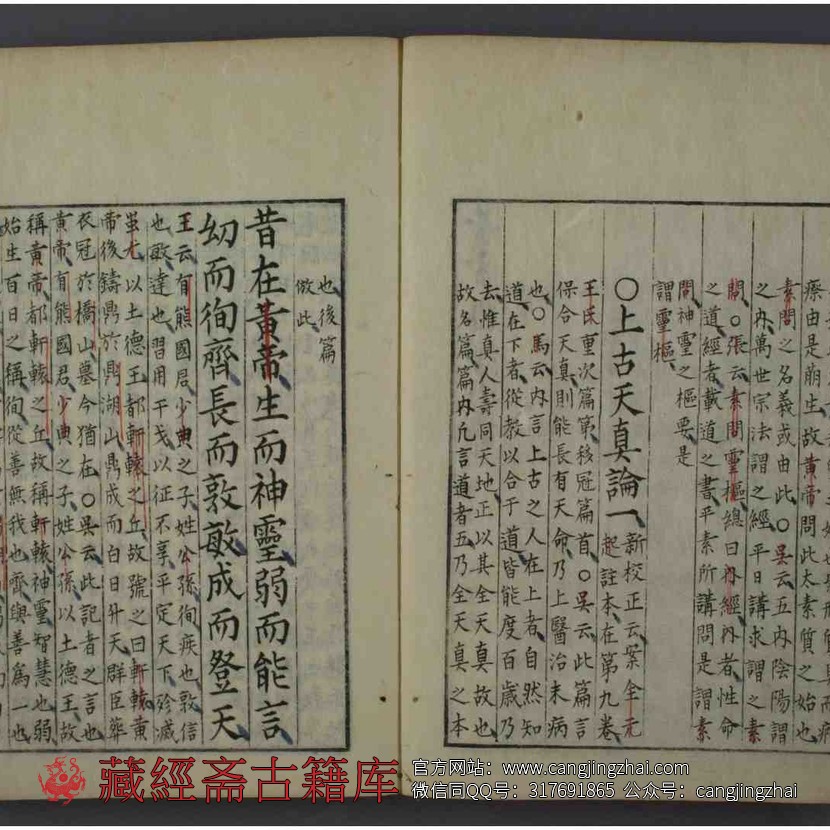 瘵由是萠生故黄帝問此太素質之始也
素問之名義或由此〇吴云五内陰陽謂
之内萬世宗法謂之經平日講求謂之素
問〇張云素問靈樞總曰内經内者性命
之道經者載道之書平素所講問是謂素
問神靈之樞要是
謂靈樞
〇上古天真論一
新校正云案全元
起註本在第九卷
王氏重次篇第移冠篇首〇吴云此篇言
保合天真則能長有天命乃上醫治未病
也〇馬云内言上古之人在上者自然知
道在下者從教以合于道皆能度百歲乃
去惟真人壽同天地正以其全天真故也
故名篇篇内凢言道者五乃全天真之本
也後篇
倣此
昔在黄帝生而神靈弱而能言
㓜而徇齊長而敦敏成而登天
王云有熊國君少典之子姓公孫徇疾也敦信
也敏達也習用干戈以征不享平定天下殄滅
蚩尤以土德王都軒轅之丘故號之曰軒轅黄
帝後鑄鼎於鼎湖山鼎成而白日升天群臣葬
衣冠於橋山墓今猶在〇吴云此記者之言也
黄帝有熊國君少典之子姓公孫以土德王故
稱黄帝都軒轅之丘故稱軒轅神靈智慧也弱
始生百日之稱徇從善無我也齊與善爲一也
藏經斎古籍库
官方网站：www.cangjingzhai.com
微信同QQ号：317691865 公众号：cangjingzhai